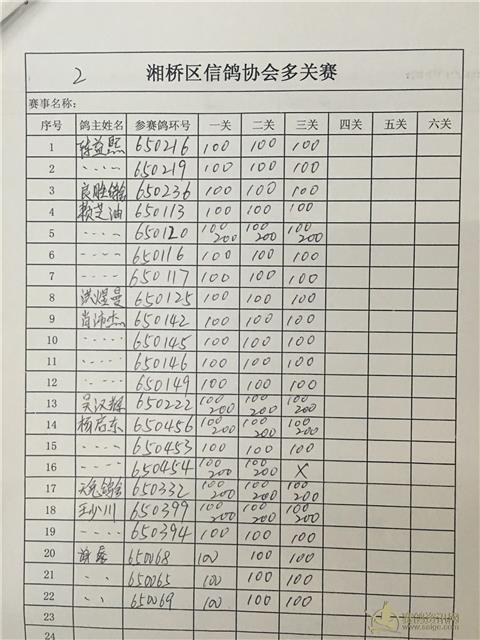 2 湘桥区信鸽协会多关赛
赛事名称:
序号 鸽主姓名 参赛鸽环号 一关 二关 三关 四关 五关 六关
1 陈益熙 650216 100 100 100
2 〃 650219 100 100 100
3 良胜鸽舍 650236 100 100 100
4 赖芝油 650113 100 100 100
5 〃 650120 100 200 100 200 100 200
6 〃 650116 100 100 100
7 〃 650117 100 100 100
8 洪煜曼 650125 100 100 100
9 肖沛杰 650142 100 100 100
10 〃 650145 100 100 100
11 〃 650146 100 100 100
12 〃 650149 100 100 100
13 吴汉辉 650222 100 200 100 200 100 200
14 杨启东 650456 100 200 100 200 100 200
15 〃 650453 100 100 100
16 〃 650454 100 200 100 200 X
17 650332 100 200 100 200 100 200
18 王少川 650399 100 200 100 200 100 200
19 〃 650394 100 100 100
20 650068 100 100 100
21 〃 650065 100 100 100
22 〃 650069 100 100 100
23
24
赛鸽资讯网
www.saige.com